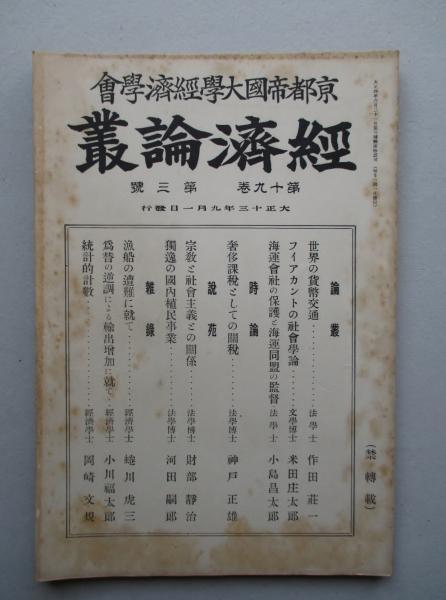 會學濟經學大國帝都京
叢論濟經
號三第 卷九十第
行發日一月九年三十正大
論叢
世界の貨幣交通 法學士 作田莊一
フィアカントの社會學論 文學博士 米田庄太郎
海運會社の保護と海運同盟の監督 法學士 小島昌太郎
時論
奢侈課稅としての關稅 法學博士 神戶正雄
說苑
宗敎と社會主義との關係 法學博士 財部靜治
獨逸の國內植民事業 法學博士 河田嗣郎
雜錄
漁船の遭難に就て 經濟學士 蜷川虎三
爲替の逆調による輸出增加に就て 經濟學士 小川福太郎
統計的計數 經濟學士 岡崎文規
(禁轉載)